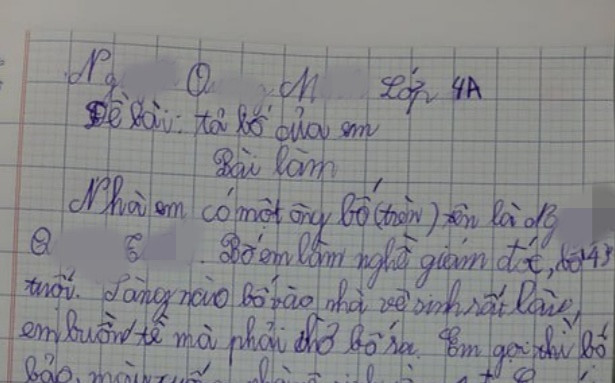 Ng Q M Lớp 4A
Đề bài: tả bố của em
Bài làm
Nhà em có một ông bố (tròn) tên là Ng
Q. Bố em làm nghề giám đốc, bố 43
tuổi. Sáng nào bố vào nhà vệ sinh rất lâu,
em buồn tè mà phải chờ bố ra. Em gọi thì bố
bảo,